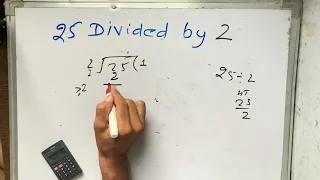 25 Divided by 2
2 √25(1
2
25÷2
25
2